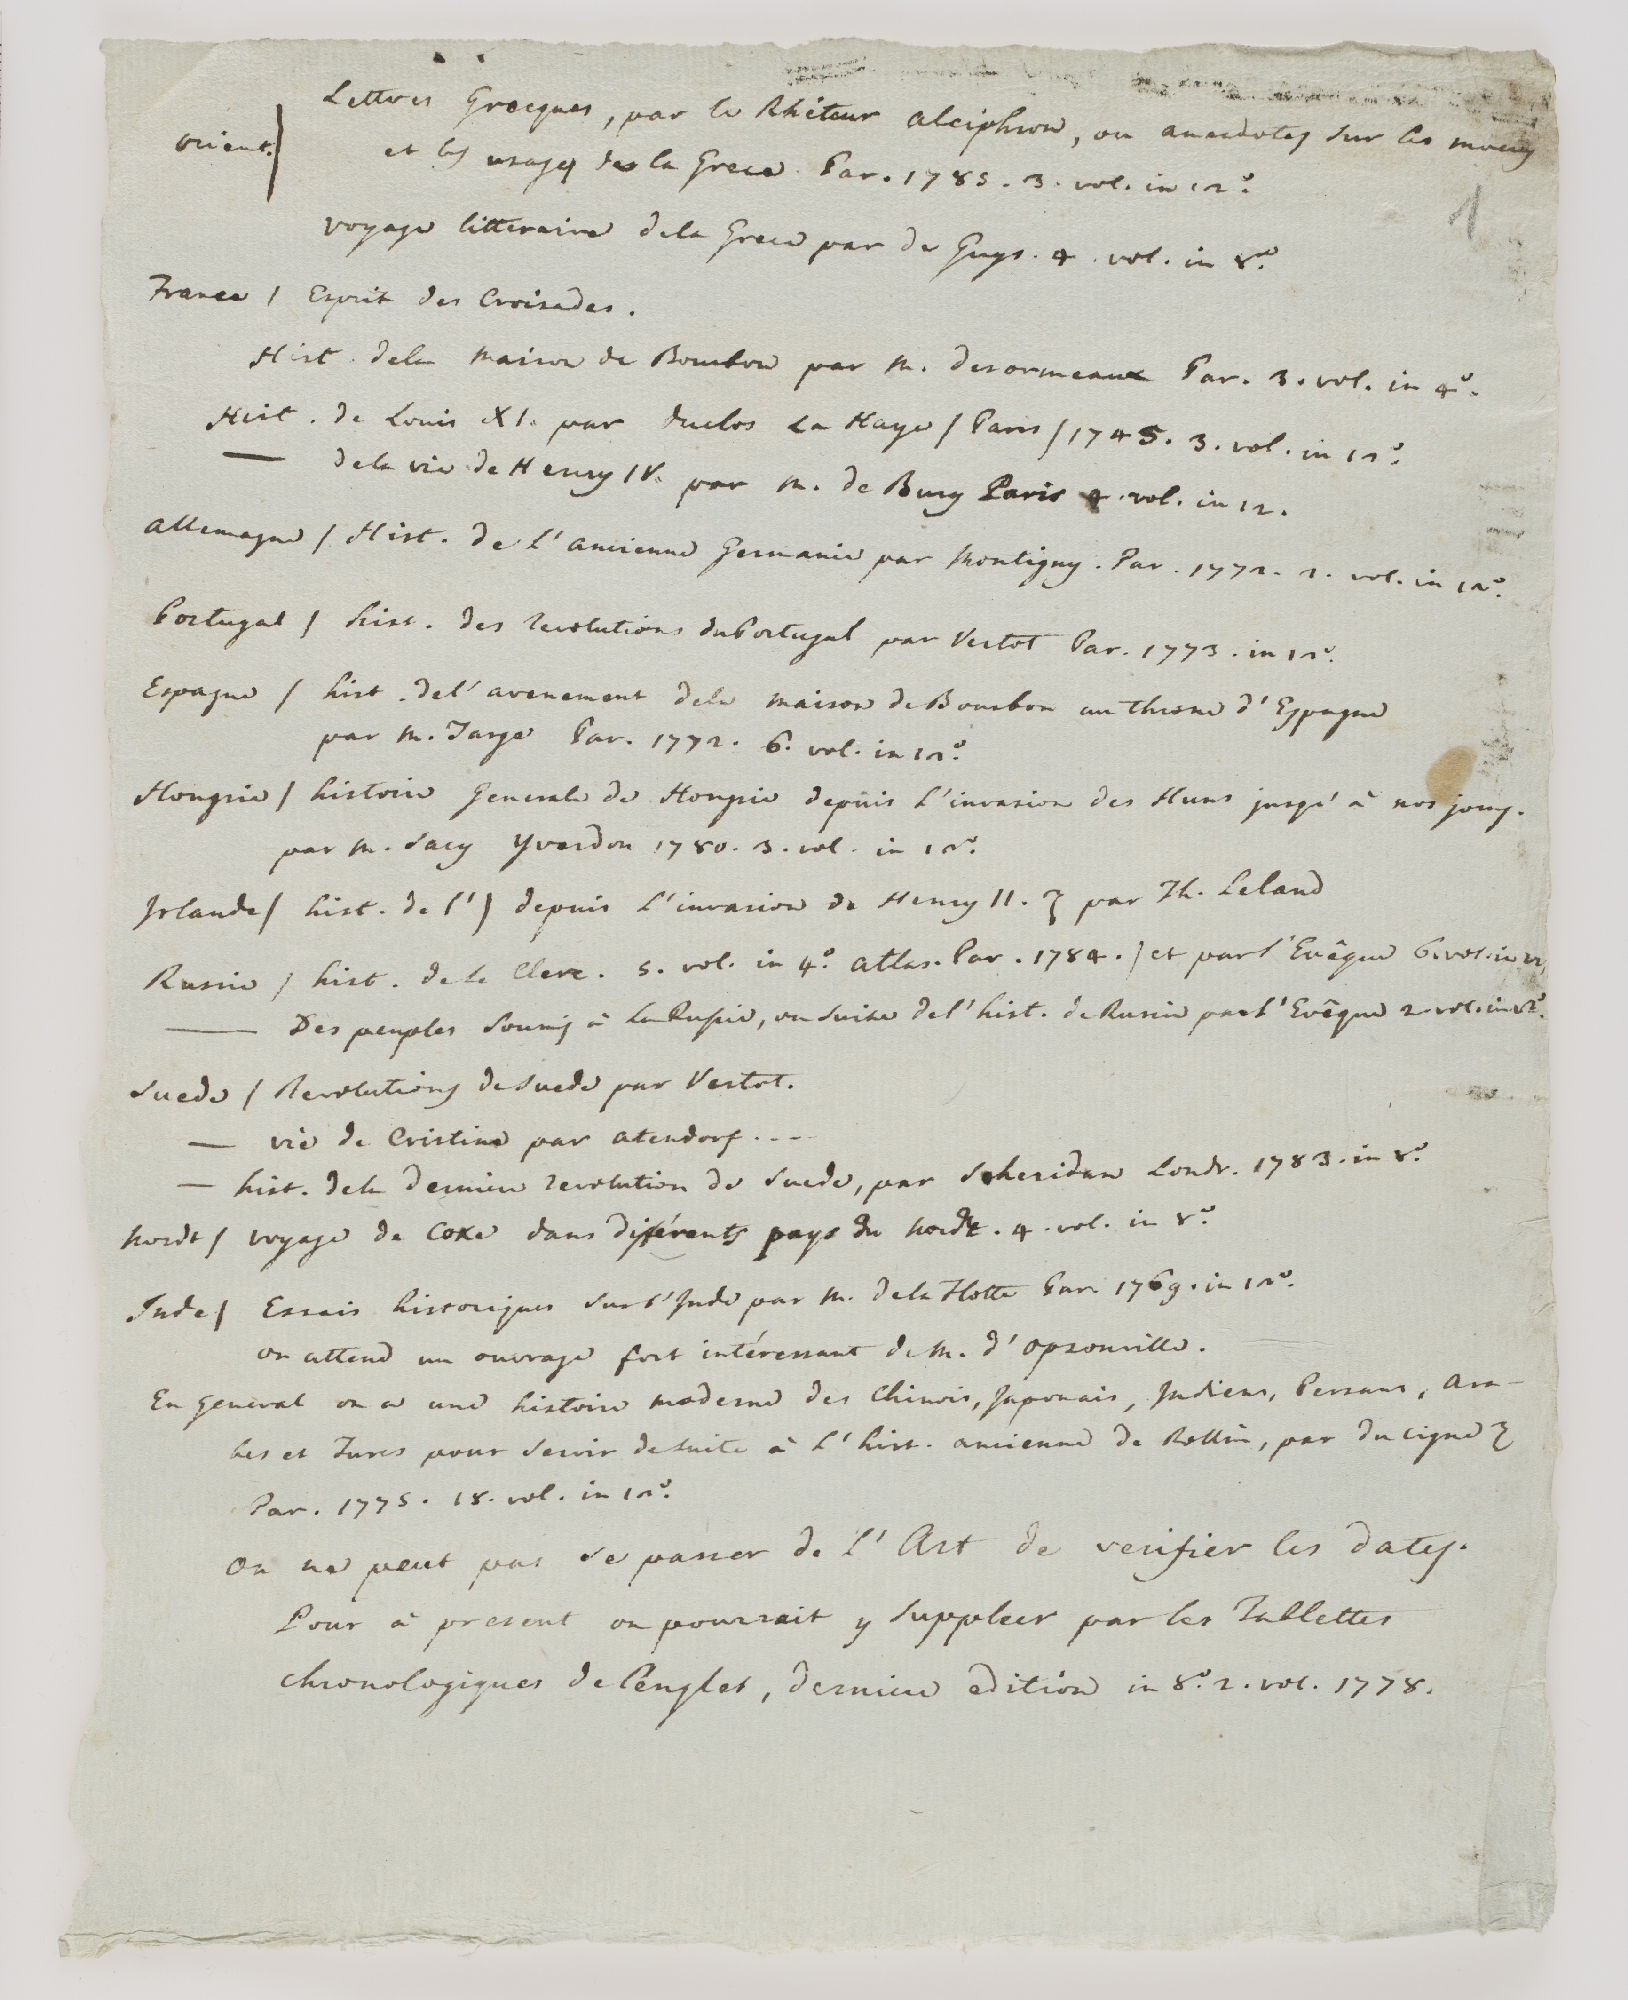 Lettres Grecques, par le Rhéteur alciphron, ou anecdotes sur les moeurs
orient.) et les usages de la Grece. Par. 1785. 3. vol. in 12º.
voyage litteraire dela Grece par de Guys. 4. vol. in 8vo.
France / Esprit des Croisades.
Hist. dela maison de Bourbon par m. desormeaux Par. 3. vol. in 4º.
Hist. de Louis XI. par duclos La Haye / Paris / 1745. 3. vol. in 12º.
— dela vie de Henry IV. par m. de Bury Paris 4. vol. in 12.
allemagne / Hist. de L'ancienne Germanie par Montigny. Par. 1772. 2. vol. in 12º.
Portugal / hist. des revolutions du Portugal par Vertot Par. 1773. in 12º.
Espagne / hist. del'avenement dela maison de Bourbon au throne d'Espagne
par m. Targe Par. 1772. 6. vol. in 12º.
Hongrie / histoire Generale de Hongrie depuis L'invasion des Huns jusqu'à nos jours.
par m. Sacy Yverdon 1780. 3. vol. in 12º.
Irlande / hist. de l') depuis L'invasion de Henry II. par Th. Leland
Russie / hist. de Le Clerc. 5. vol. in 4º. atlas. Par. 1784. / et par l'Evêque 6. vol. in 12,
— Des peuples soumis à La Russie, ou suite de l'hist. de Russie par l'Evêque 2. vol. in 12º.
Suede / Revolutions de Suede par Vertot.
— vie de Cristine par atendorf....
— hist. dela derniere revolution de Suede, par Scheridan Londr. 1783. in 8º.
Nordt / voyage de Coxe dans différents pays du Nordt. 4. vol. in 8º.
Inde / Essais historiques sur l'Inde par m. dela Flotte Par. 1769. in 12º.
on attend un ouvrage fort intéressant de M. d'Opsonville.
En General on a une histoire moderne des Chinois, Japonais, Indiens, Persans, Ara-
bes et Turcs pour servir de suite à L'hist. ancienne de Rollin, par du cigne
Par. 1775. 18. vol. in 12º.
On ne peut pas se passer de L'Art de verifier les dates.
Pour à present on pourrait y suppleer par les Tablettes
chronologiques de Lenglet, derniere edition in 8º. 2. vol. 1778.
1